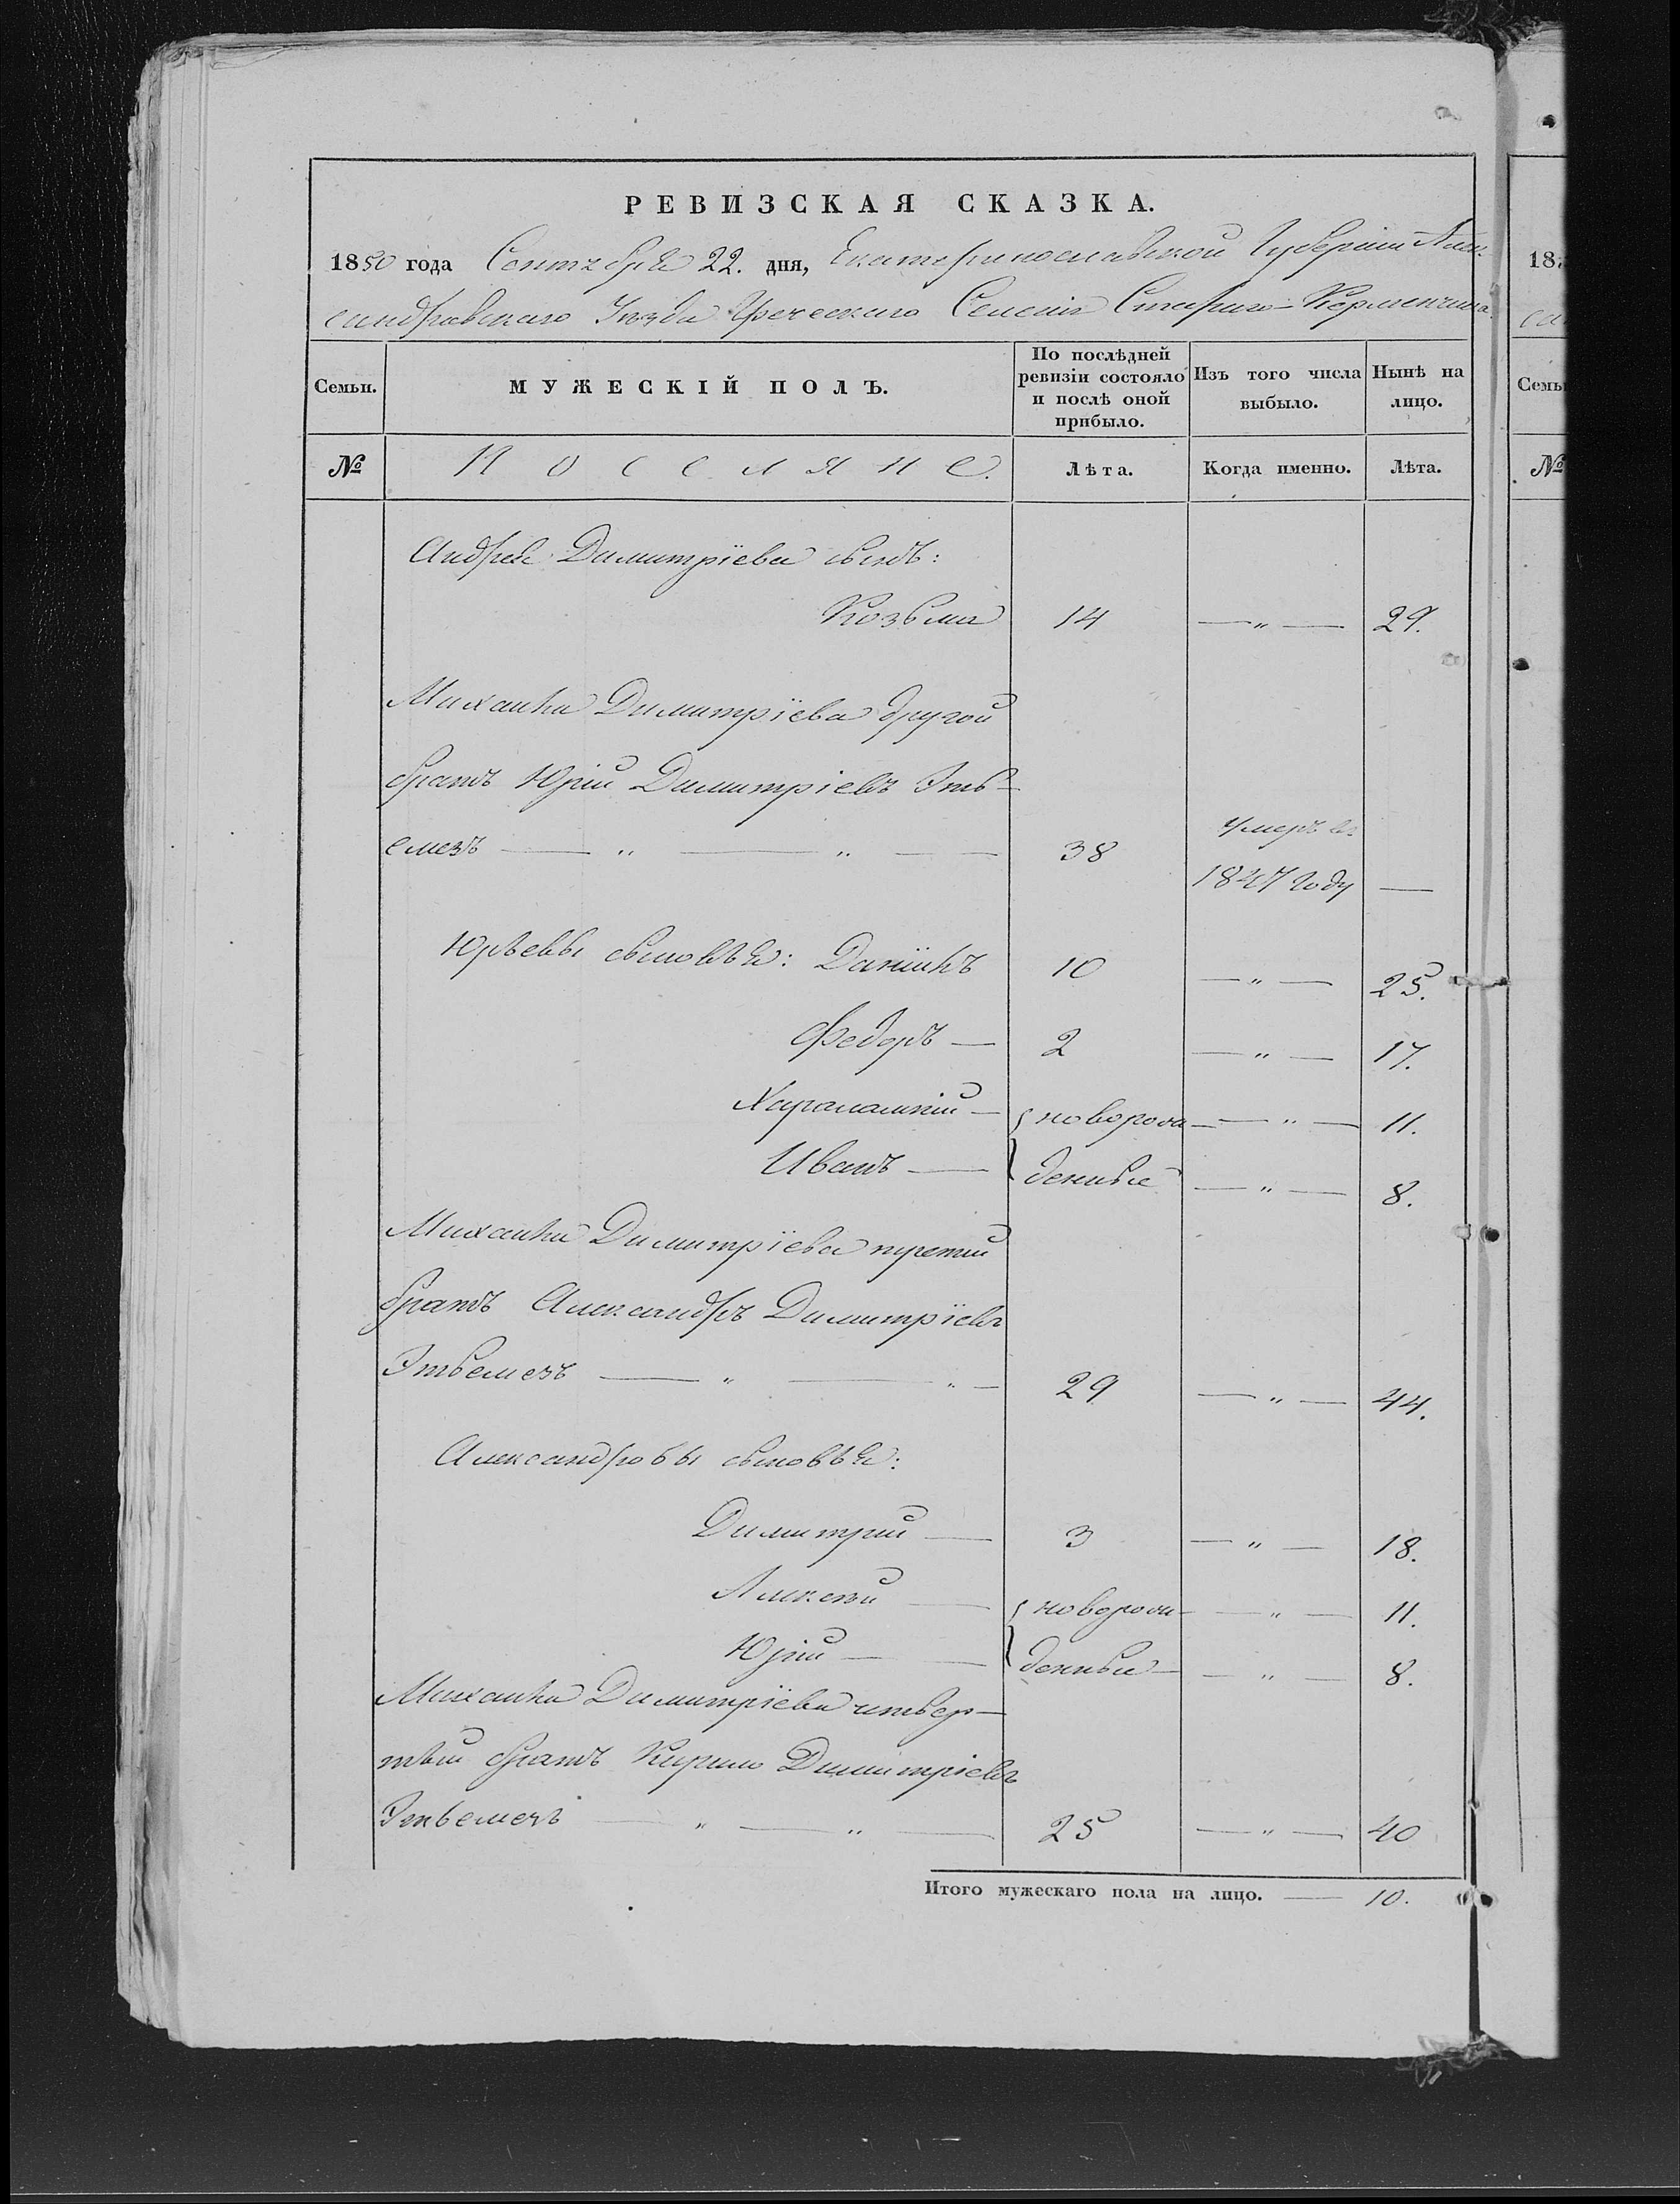 РЕВИЗСКАЯ СКАЗКА.
1850 года Сентября 22. дня, Екатеринославской Губерніи Алек-
сандровскаго Уѣзда Греческаго Селенія Стараго-Керменчика
Семьи. МУЖЕСКІЙ ПОЛЪ. По послѣдней ревизіи состояло и послѣ оной прибыло. Изъ того числа выбыло. Нынѣ на лицо.
№ Поселяне. Лѣта. Когда именно. Лѣта.
Андрея Димитріева сынъ:
Козьма 14 —„— 29.
Михаила Димитріева другой
братъ Юрій Димитріевъ Эть-
емезъ — „ — „ — 38 умеръ въ
1847 году —
Юрьевы сыновья: Даніилъ 10 —„— 25.
Федоръ — 2 —„— 17.
Харалампій — новорож- —„— 11.
Иванъ — денные —„— 8.
Михаила Димитріева третій
братъ Александръ Димитріевъ
Этьемезъ — „ — „ — 29 —„— 44.
Александровы сыновья:
Димитрій — 3 —„— 18.
Алексѣй — новорож- —„— 11.
Юрій — денные —„— 8.
Михаила Димитріева четвер-
тый братъ Кирило Димитріевъ
Этьемезъ — „ — „ — 25 —„— 40
Итого мужескаго пола на лицо. — 10.
18
Семьи
№